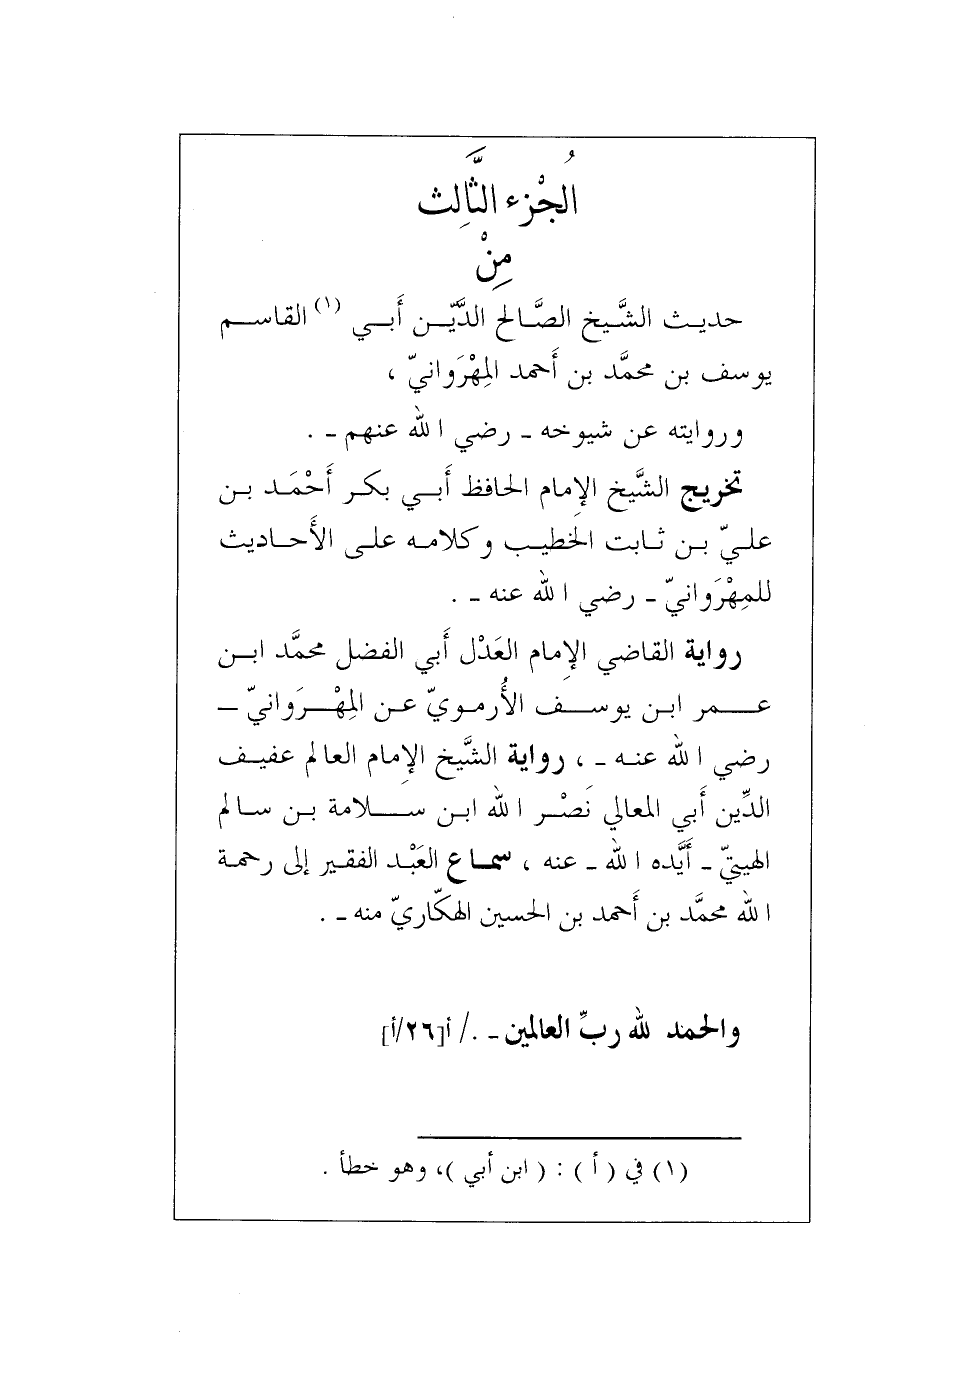 الجُزْء الثَّالِث
مِنْ
حديث الشَّيخ الصَّالح الدَّيِّن أَبي (١) القاسم
يوسف بن محمَّد بن أَحمد المِهْرَوانيّ ،
وروايته عن شيوخه ـ رضي الله عنهم ـ .
تخريج الشَّيخ الإمام الحافظ أَبي بكر أَحْمَد بن
عليّ بن ثابت الخطيب وكلامه على الأَحاديث
للمِهْرَوانيّ ـ رضي الله عنه ـ .
رواية القاضي الإمام العَدْل أَبي الفضل محمَّد ابن
عمر ابن يوسف الأُرمويّ عن المِهْرَوانيّ ـ
رضي الله عنه ـ ، رواية الشَّيخ الإمام العالم عفيف
الدِّين أَبي المعالي نَصْر الله ابن سلامة بن سالم
الهيتيّ ـ أَيَّده الله ـ عنه ، سماع العَبْد الفقير إلى رحمة
الله محمَّد بن أَحمد بن الحسين الهكّاريّ منه ـ .
والحمد لله ربِّ العالمين ـ . / أ[٢٦/أ]
(١) في ( أ ) : ( ابن أبي )، وهو خطأ .